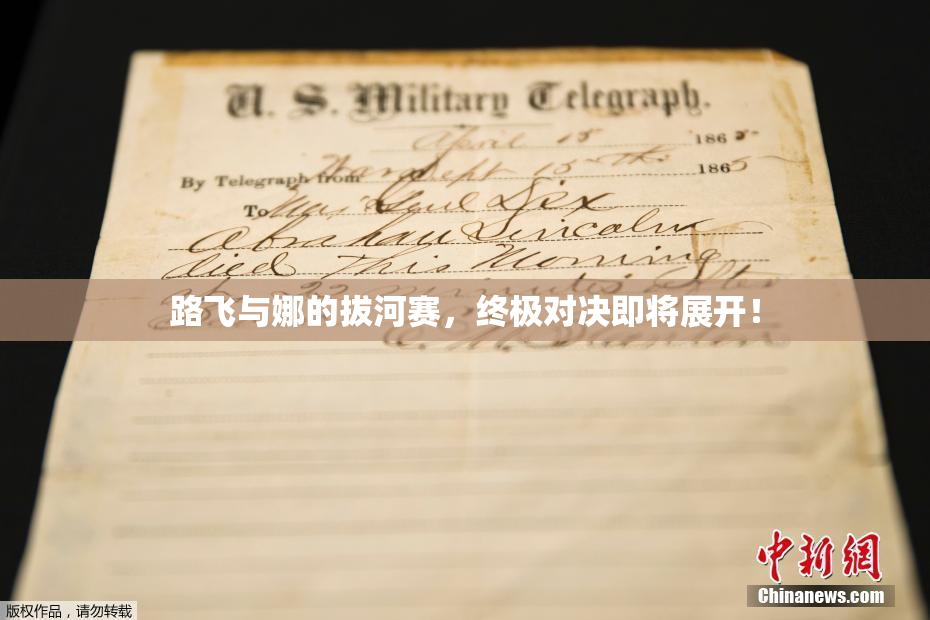 U. S. Military Telegraph.
April 15 1865
By Telegraph from War Dept 15th 1865
To Maj Genl Dix
Abraham Lincoln
died This Morning
at 22 minutes after
路飞与娜的拔河赛，终极对决即将展开！
E. M. Stanton
中新網
Chinanews.com
版权作品，请勿转载